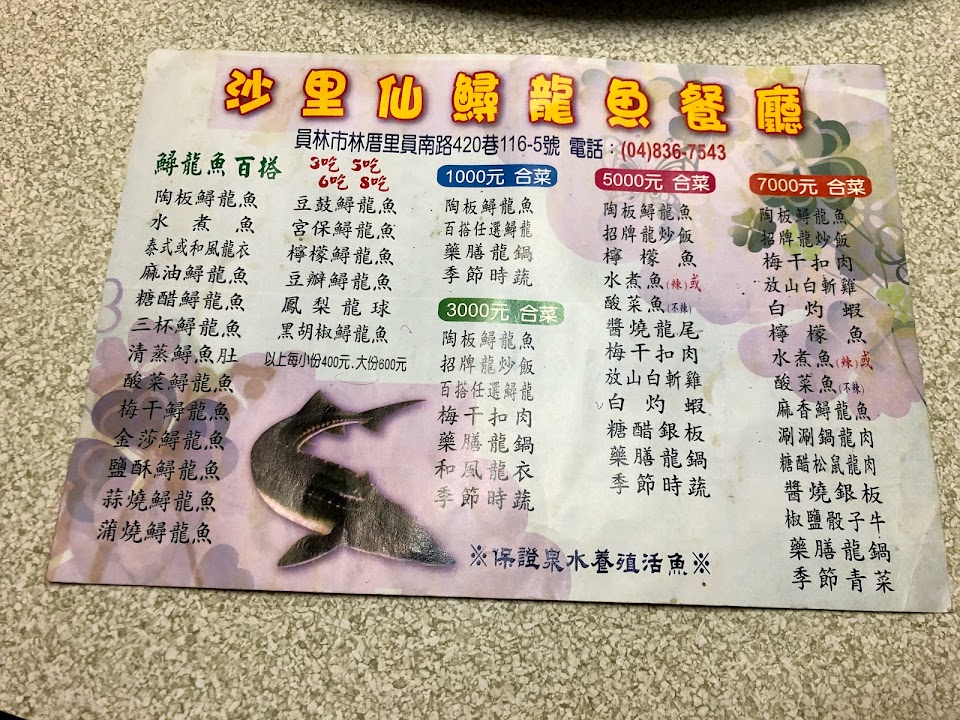 沙里仙鱘龍魚餐廳
員林市林厝里員南路420巷116-5號 電話：(04)836-7543
鱘龍魚百搭
3吃 5吃
6吃 8吃
陶板鱘龍魚
水煮魚
泰式或和風龍衣
麻油鱘龍魚
糖醋鱘龍魚
三杯鱘龍魚
清蒸鱘魚肚
酸菜鱘龍魚
梅干鱘龍魚
金莎鱘龍魚
鹽酥鱘龍魚
蒜燒鱘龍魚
蒲燒鱘龍魚
豆鼓鱘龍魚
宮保鱘龍魚
檸檬鱘龍魚
豆瓣鱘龍魚
鳳梨龍球
黑胡椒鱘龍魚
以上每小份400元.大份600元
1000元 合菜
陶板鱘龍魚
百搭任選鱘龍
藥膳龍鍋
季節時蔬
3000元 合菜
陶板鱘龍魚
招牌龍炒飯
百搭任選鱘龍
梅干扣肉
藥膳龍鍋
和風龍衣
季節時蔬
5000元 合菜
陶板鱘龍魚
招牌龍炒飯
檸檬魚
水煮魚(辣)或
酸菜魚(不辣)
醬燒龍尾
梅干扣肉
放山白斬雞
白灼蝦
糖醋銀板
藥膳龍鍋
季節時蔬
7000元 合菜
陶板鱘龍魚
招牌龍炒飯
梅干扣肉
放山白斬雞
白灼蝦
檸檬魚
水煮魚(辣)或
酸菜魚(不辣)
麻香鱘龍魚
涮涮鍋龍肉
糖醋松鼠龍肉
醬燒銀板
椒鹽骰子牛
藥膳龍鍋
季節青菜
※保證泉水養殖活魚※